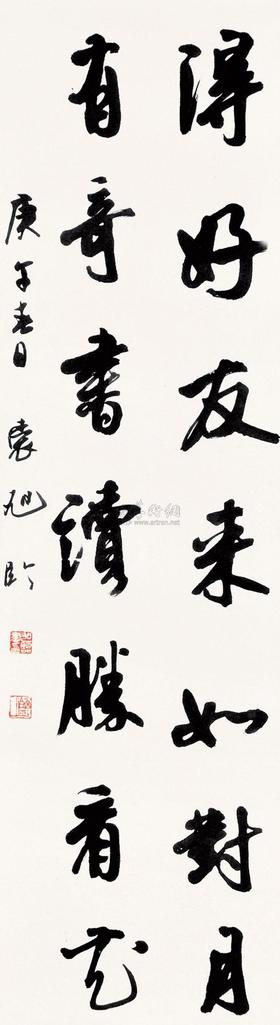 得好友来如對月
有奇書讀勝看花
庚午春日 袁旭臨
www.artron.net